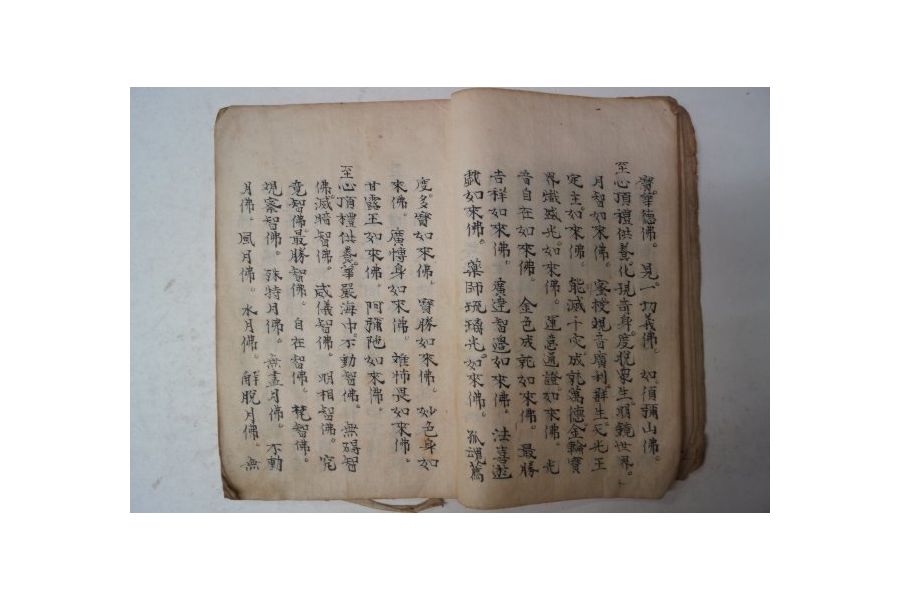 寶華德佛。見一切義佛。如須彌山佛。
至心頂禮供養。化現奇身。度脫衆生。明鏡世界。
月智如來佛。密授觀音廣利群生。天光王
定主如來佛。能滅十灾成就萬德。金輪寶
界熾盛光如來佛。運意通證如來佛。光
音自在如來佛。金色成就如來佛。最勝
吉祥如來佛。廣達智邊如來佛。法喜遊
戱如來佛。藥師琉璃光如來佛。孤魂薦
度。多寶如來佛。寶勝如來佛。妙色身如
來佛。廣博身如來佛。離怖畏如來佛。
甘露王如來佛。阿彌陁如來佛。
至心頂禮供養。華嚴海中。不動智佛。無碍智
佛。滅暗智佛。威儀智佛。明相智佛。究
竟智佛。最勝智佛。自在智佛。梵智佛。
觀察智佛。殊特月佛。無盡月佛。不動
月佛。風月佛。水月佛。解脫月佛。無